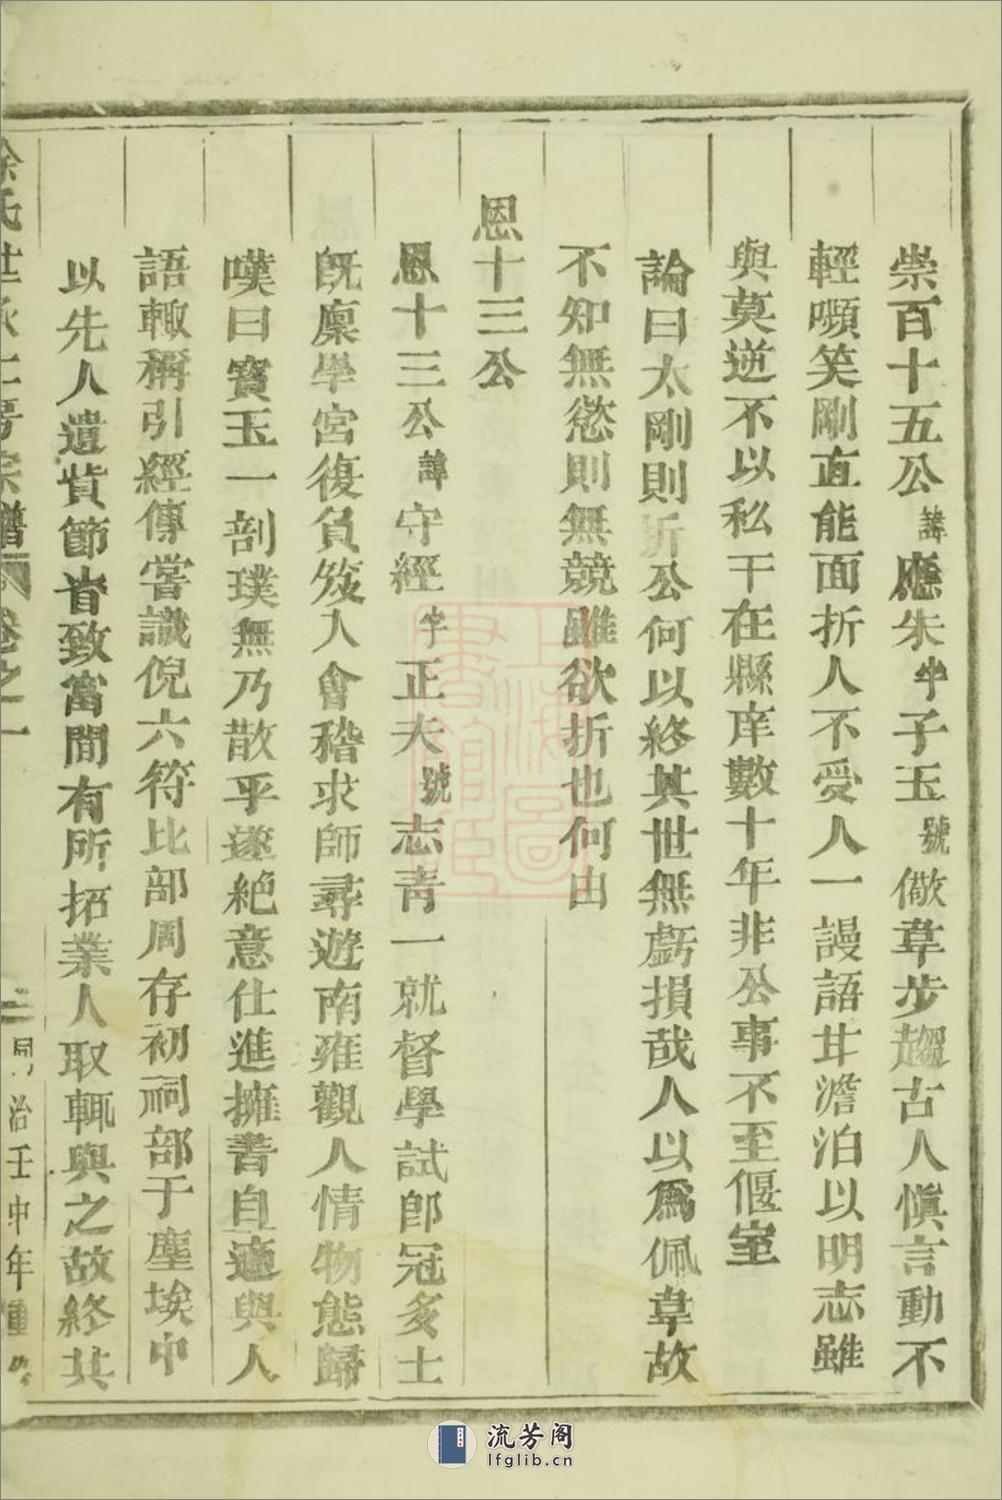 崇百十五公諱應朱字子玉號儆韋步趨古人愼言動不
輕嚬笑剛直能面折人不受人一謾語甘澹泊以明志雖
與莫逆不以私干在縣庠數十年非公事不至偃室
論曰太剛則折公何以終其世無虧損哉人以爲佩韋故
不知無慾則無競雖欲折也何由
恩十三公
恩十三公諱守經字正夫號志靑一就督學試卽冠多士
旣廩學宮復負笈入會稽求師尋遊南雍觀人情物態歸
嘆曰寶玉一剖璞無乃散乎遂絕意仕進擁書自適與人
語輒稱引經傳嘗識倪六符比部周存初祠部于塵埃中
以先人遺貲節眚致富間有所拓業人取輒與之故終其
徐氏世承二房宗譜 卷之一 二 同治壬申年重
上海圖書館藏
流芳阁
lfglib.cn